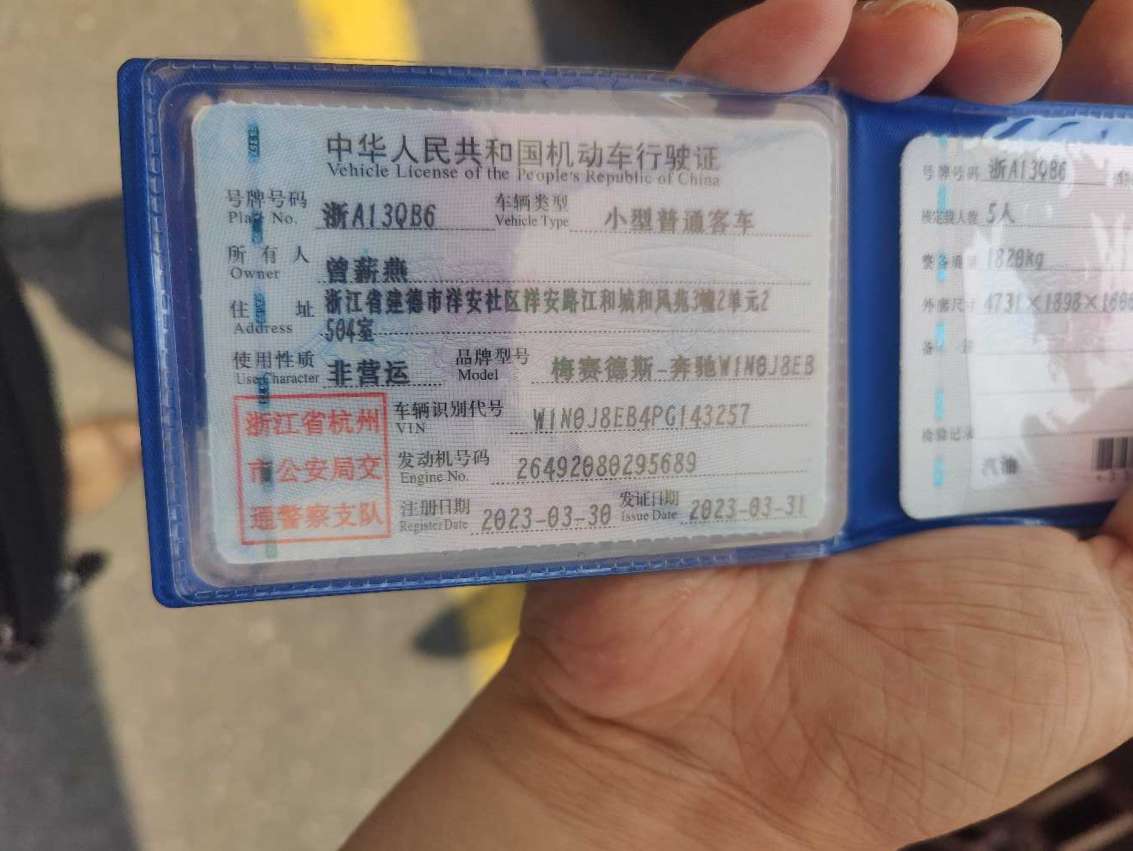 中华人民共和国机动车行驶证
Vehicle License of the People's Republic of China
号牌号码 浙A13QB6 车辆类型 小型普通客车
Plate No. Vehicle Type
所有人 曾薪燕
Owner
住址 浙江省建德市洋安社区洋安路江和城和风苑3幢2单元2
Address 504室
使用性质 非营运 品牌型号 梅赛德斯-奔驰W1N0J8EB
Use Character Model
浙江省杭州
市公安局交
通警察支队
车辆识别代号 W1N0J8EB4PG143257
VIN
发动机号码 26492080295689
Engine No.
注册日期 2023-03-30 发证日期 2023-03-31
Register Date Issue Date
号牌号码 浙A13QB6
核定载人数 5人
整备质量 1820kg
外廓尺寸 4731×1898×
备注
检验记录